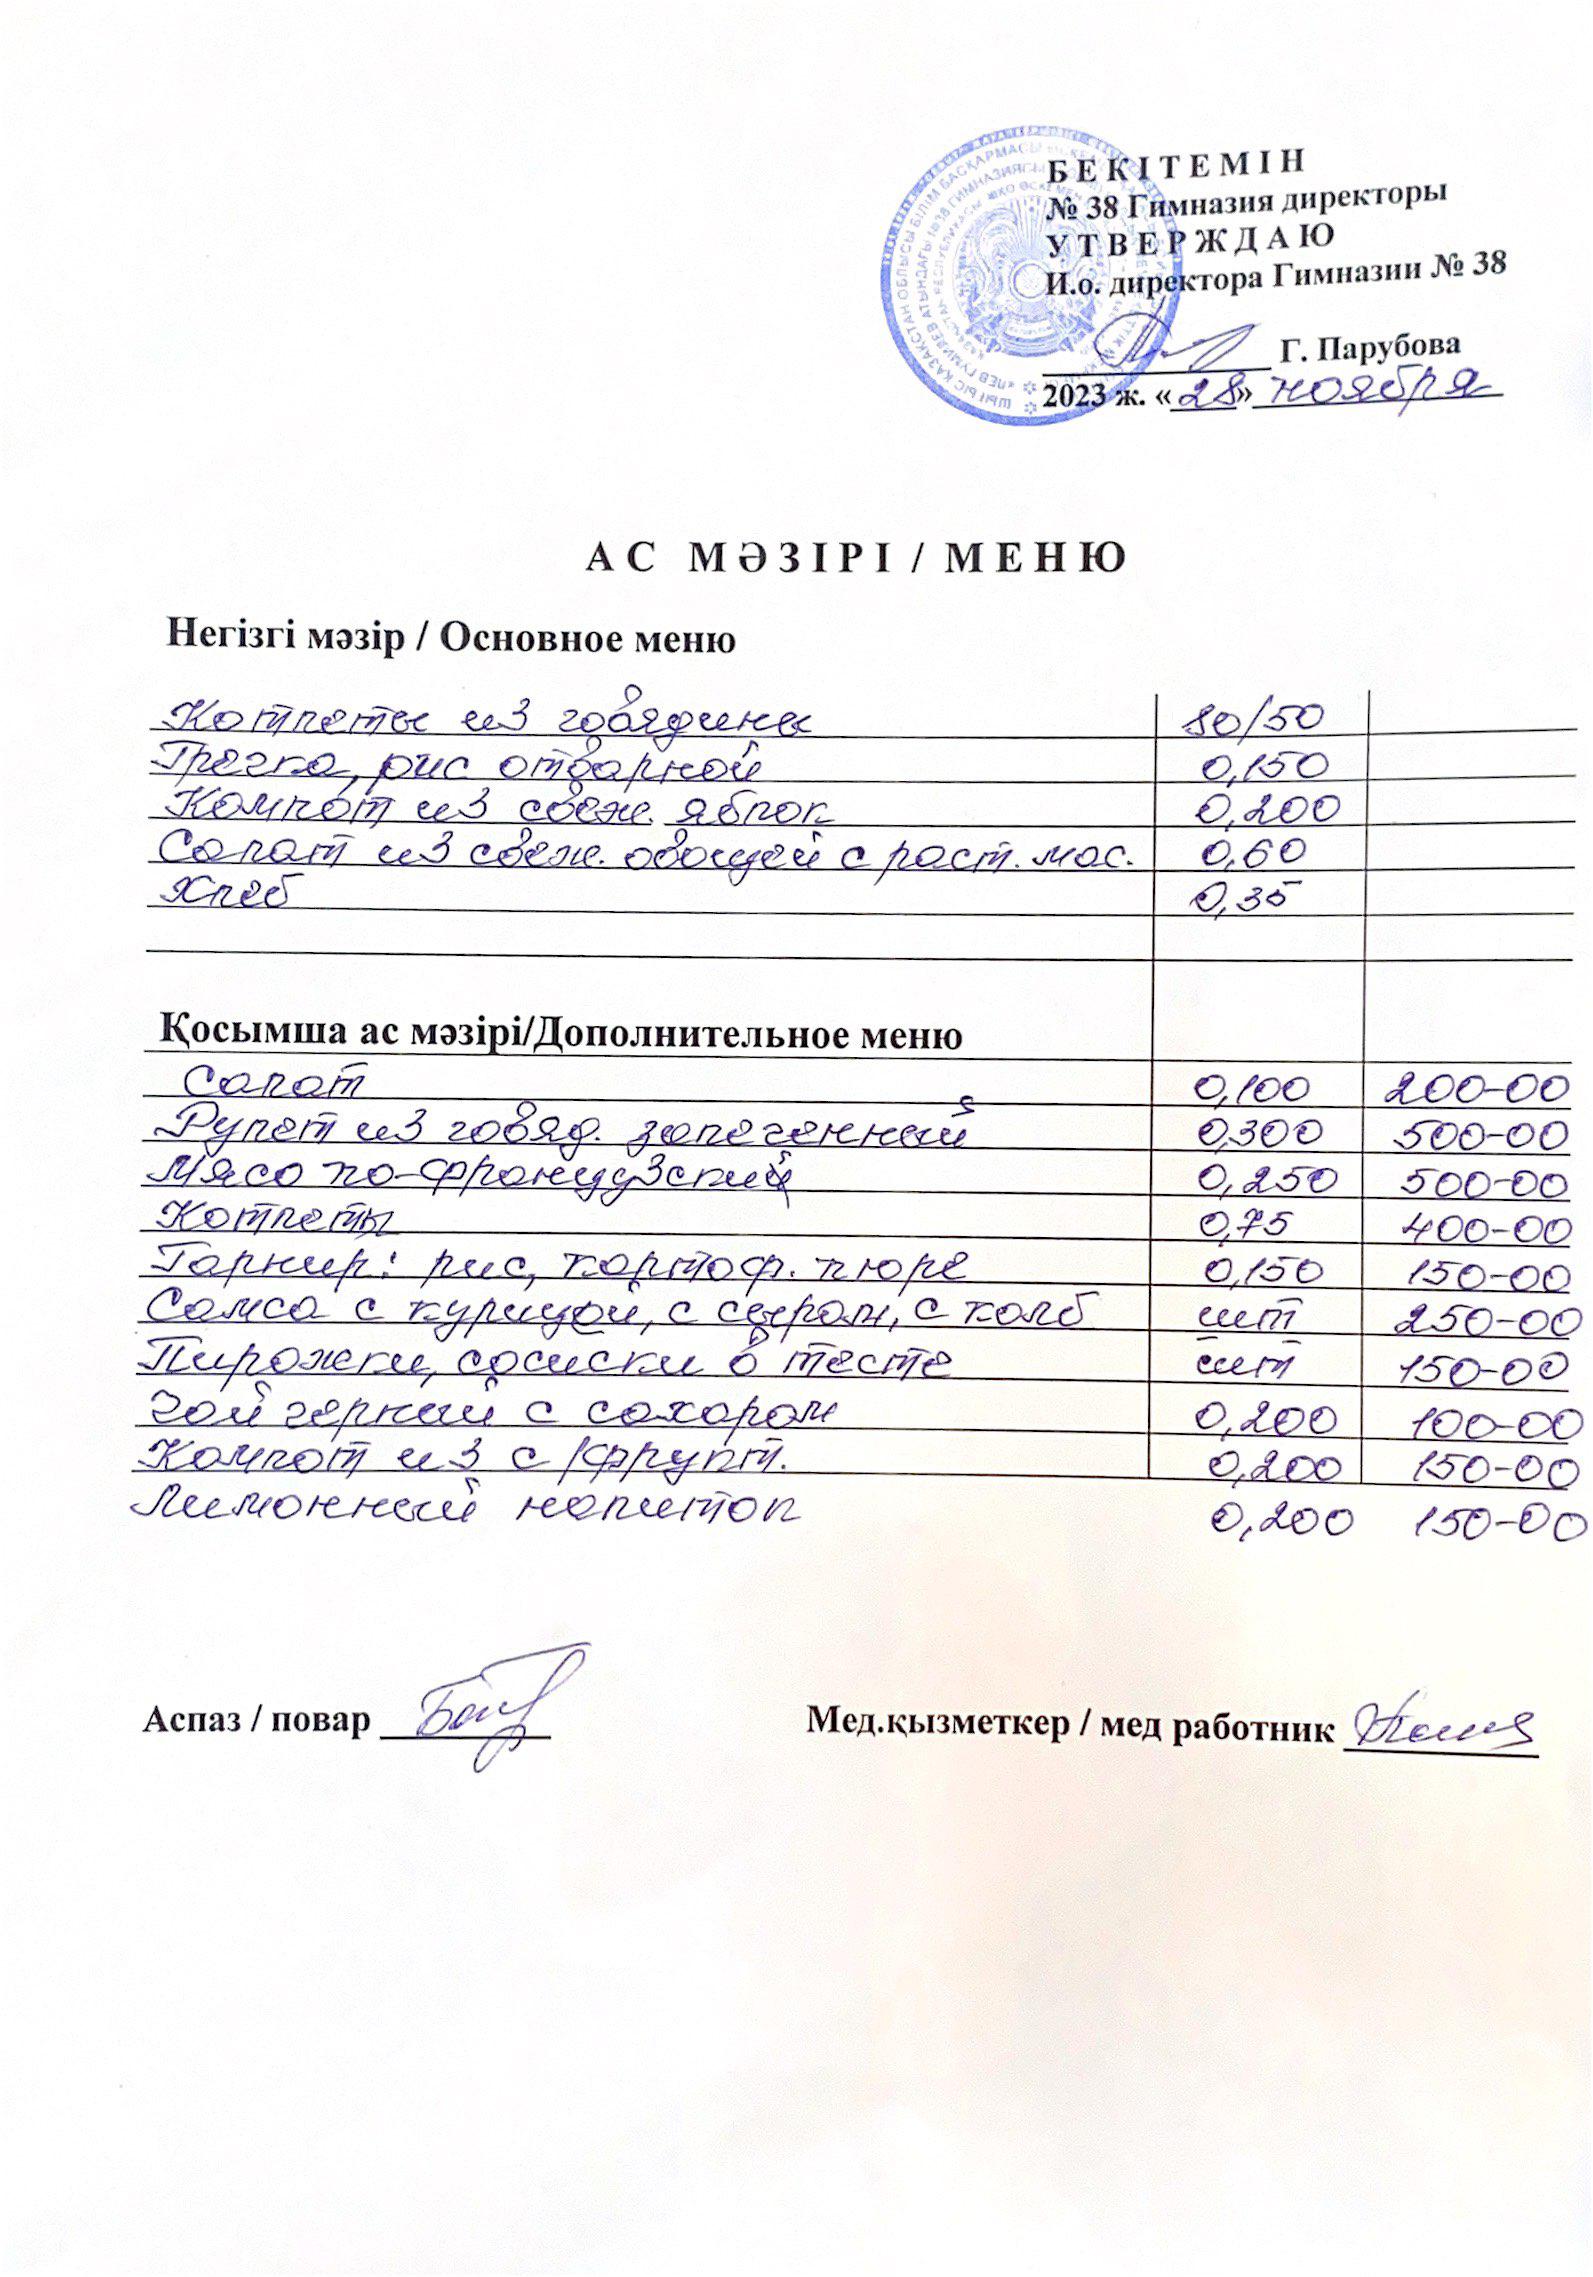 БЕКІТЕМІН
№ 38 Гимназия директоры
УТВЕРЖДАЮ
И.о. директора Гимназии № 38
Г. Парубова
2023 ж. «28» ноября
АС МӘЗІРІ / МЕНЮ
Негізгі мәзір / Основное меню
Котлеты из говядины 80/50
Гречка, рис отварной 0,150
Компот из свеж. яблок 0,200
Салат из свеж. овощей с раст. мас. 0,60
Хлеб 0,35
Қосымша ас мәзірі/Дополнительное меню
Салат 0,100 200-00
Рулет из говяд. запеченный 0,300 500-00
Мясо по-французский 0,250 500-00
Котлеты 0,75 400-00
Гарнир: рис, картоф. пюре 0,150 150-00
Самса с курицой, с сыром, с колб шт 250-00
Пирожки, сосиски в тесте шт 150-00
Чай черный с сахаром 0,200 100-00
Компот из с/фрукт. 0,200 150-00
Лимонный напиток 0,200 150-00
Аспаз / повар
Мед.қызметкер / мед работник